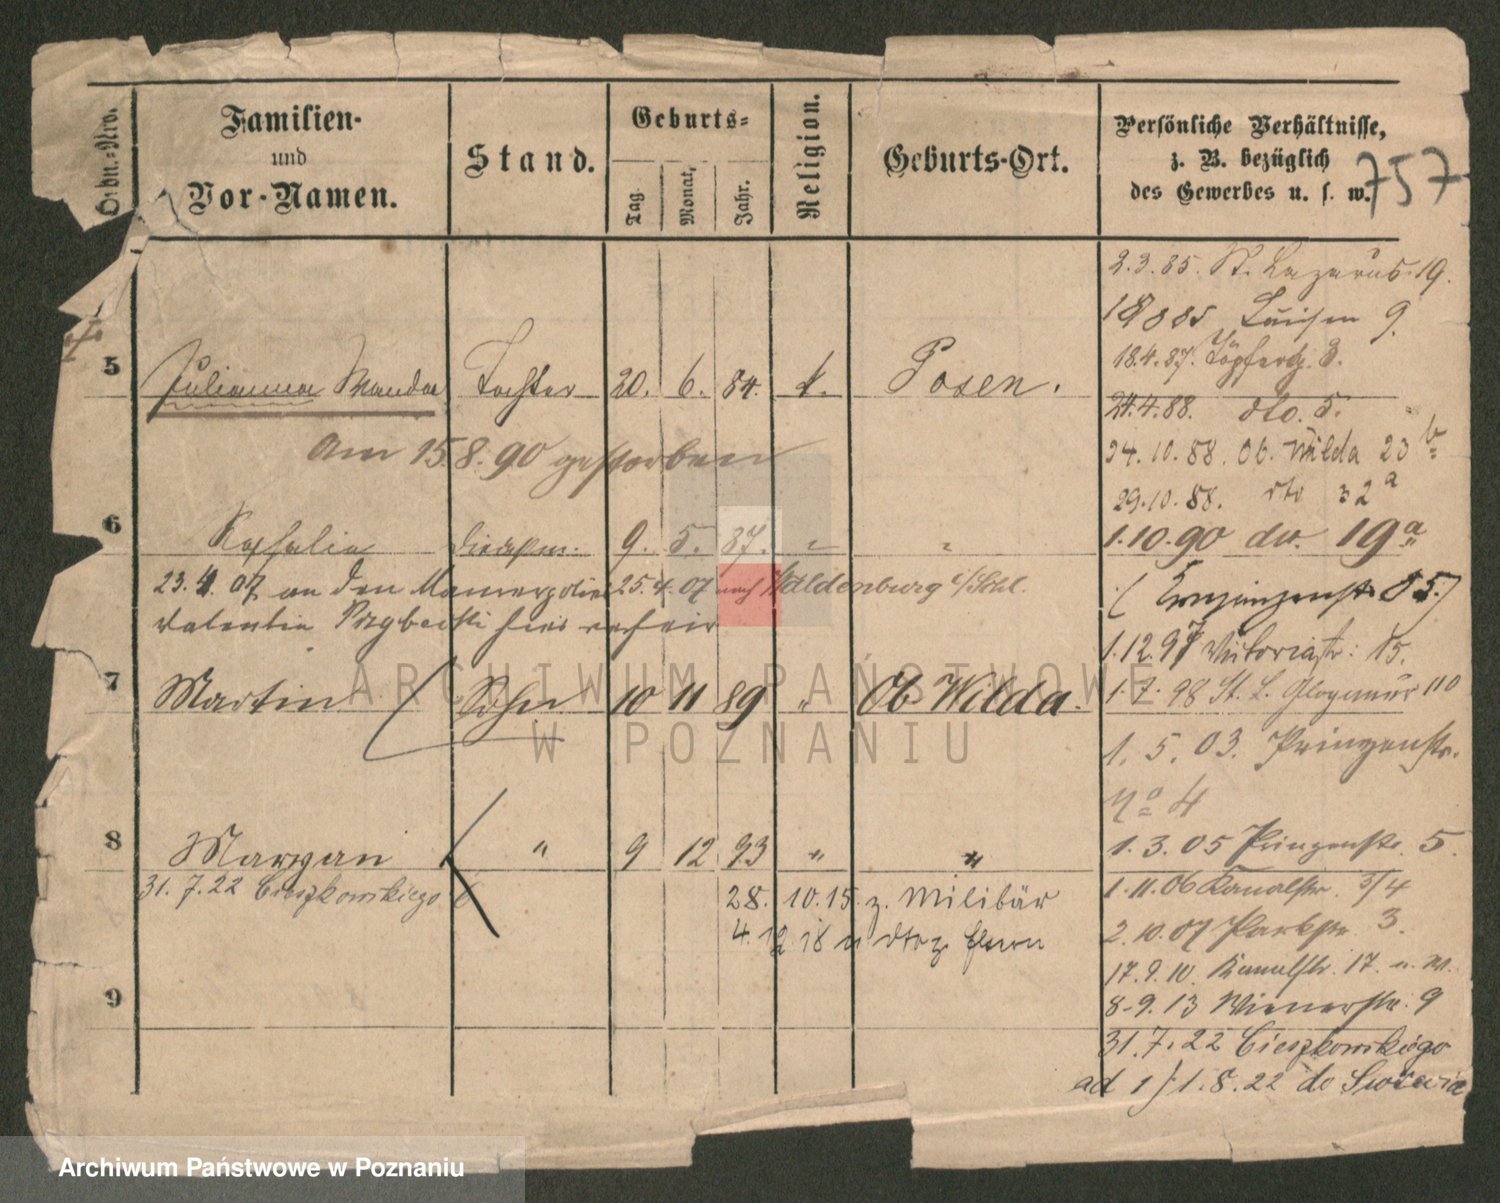 Ordn.-Nro.
Familien-
und
Vor-Namen.
Stand.
Geburts-
Tag
Monat,
Jahr.
Religion.
Geburts-Ort.
Persönliche Verhältnisse,
z. B. bezüglich
des Gewerbes u. s. w.
757
2.3.85. St. Lazarus 19.
18 8 85 Luisen 9.
18.4.87. Töpferg. 3.
5 Julianna Wanda Tochter 20. 6. 84. k. Posen.
24.4.88. dto. 5.
am 15.8.90 gestorben
24.10.88. Ob. Wilda 23 b
29.10.88. dto 32 a
6 Rosalie 9. 5. 87. " "
1.10.90 do. 19 a
23.4.07 an den 25.4.07 nach Waldenburg i/Schl.
Valentin
( Kronprinzenstr 85.)
1.12.97 Victoriastr: 15.
7 Martin Sohn 10 11 89 " Ob Wilda.
1.7.98 St. L. Glogauer 110
1.5.03. Prinzenstr.
No 4
8 Maryan " 9 12 93 " "
1.3.05 Prinzenstr. 5.
31.7.22 Cieszkowskiego 6
28.10.15 z. Militär
1.11.06 Kanalstr. 3/4
4.12 18 v dto z
2.10.07 Parkstr. 3.
17.9.10 Kanalstr. 17.
9
8.9.13 Wienerstr. 9
31.7.22 Cieszkowskiego
ad 1) 1.8.22 do
ARCHIWUM PAŃSTWOWE
W POZNANIU
Archiwum Państwowe w Poznaniu